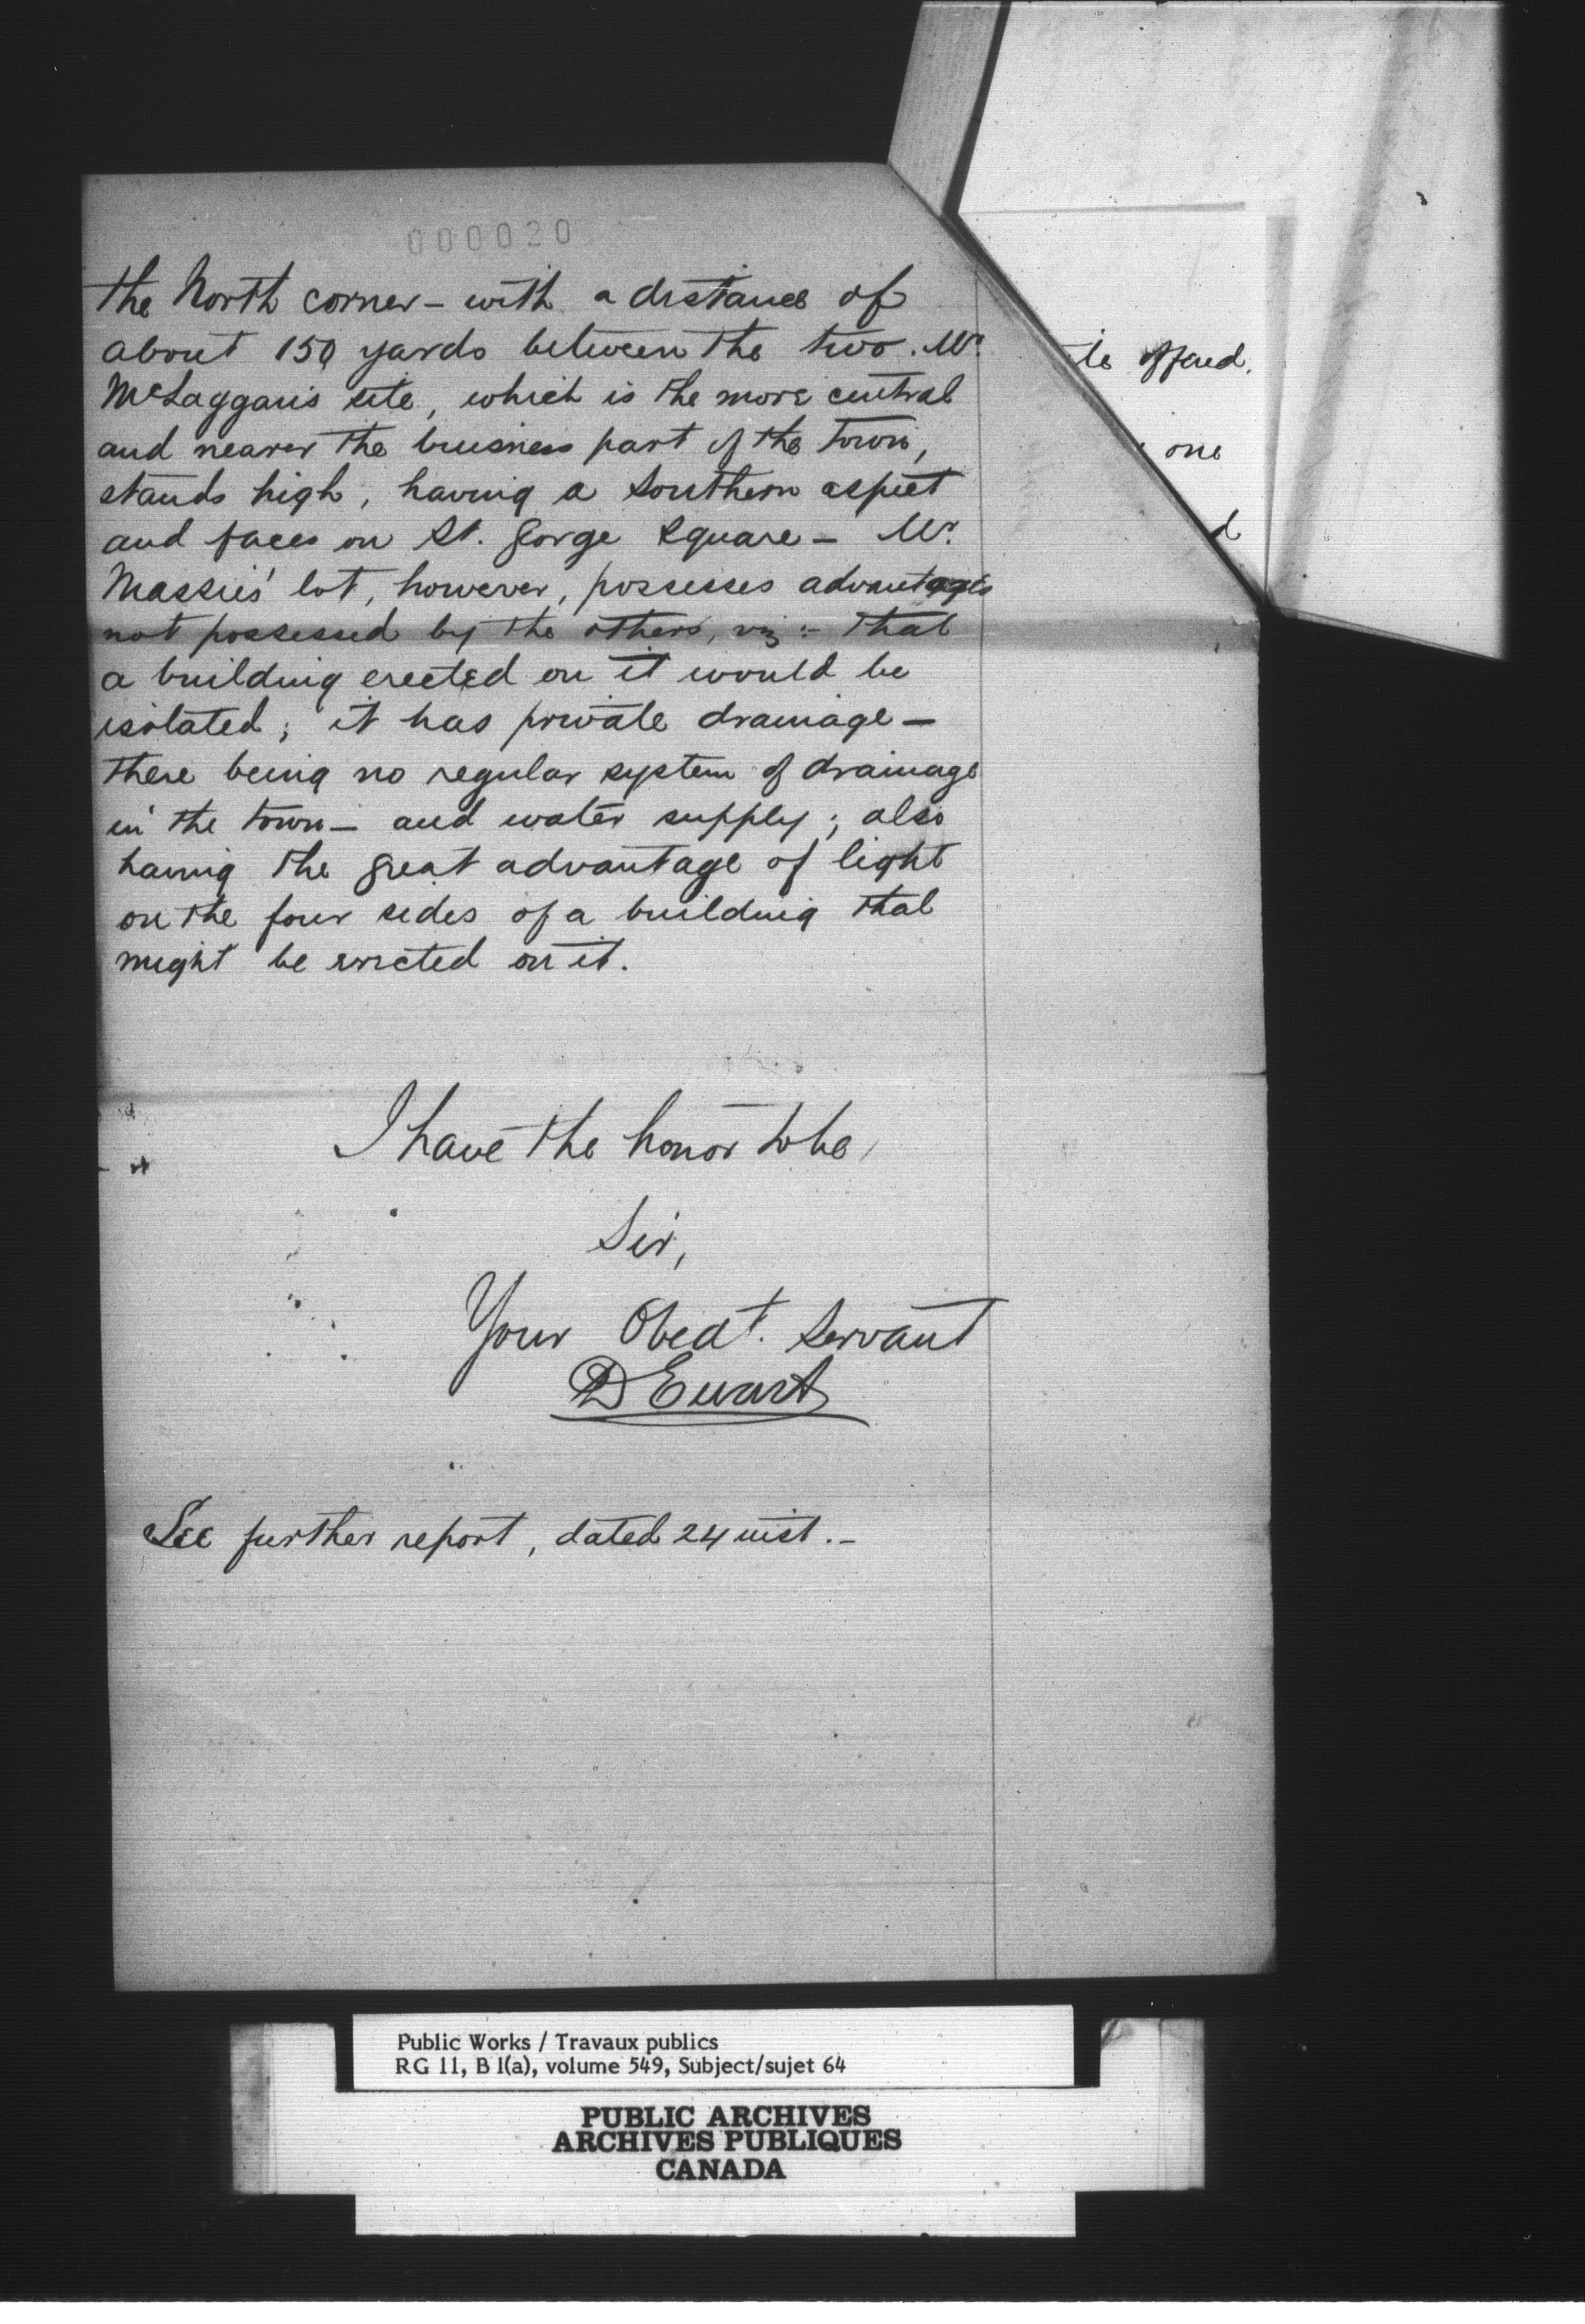 000020
the North corner - with a distance of
about 150 yards between the two. Mr.
McLaggan's site, which is the more central
and nearer the business part of the town,
stands high, having a Southern aspect
and faces on St. George Square - Mr.
Massies' lot, however, possesses advantages
not possessed by the others, viz :- that
a building erected on it would be
isolated; it has private drainage -
there being no regular system of drainage
in the town - and water supply; also
having the great advantage of light
on the four sides of a building that
might be erected on it.
I have the honor to be,
Sir,
Your Obedt. Servant
D Ewart
See further report, dated 24 inst. -
offered.
one
Public Works / Travaux publics
RG 11, B 1(a), volume 549, Subject/sujet 64
PUBLIC ARCHIVES
ARCHIVES PUBLIQUES
CANADA